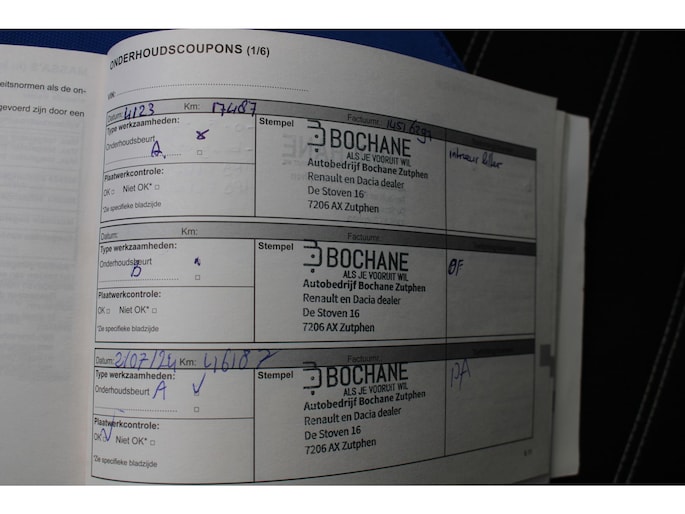 eitsnormen als de on-
gevoerd zijn door een
ONDERHOUDSCOUPONS (1/6)
VIN:
Datum: 4123 Km: 17487 Factuurnr.:
Type werkzaamheden: Stempel
Onderhoudsbeurt
A
Plaatwerkcontrole:
OK □ Niet OK* □
*Zie specifieke bladzijde
BOCHANE
ALS JE VOORUIT WIL
Autobedrijf Bochane Zutphen
Renault en Dacia dealer
De Stoven 16
7206 AX Zutphen
Datum: Km: Factuurnr.:
Type werkzaamheden: Stempel
Onderhoudsbeurt
B
Plaatwerkcontrole:
OK □ Niet OK* □
*Zie specifieke bladzijde
BOCHANE
ALS JE VOORUIT WIL
Autobedrijf Bochane Zutphen
Renault en Dacia dealer
De Stoven 16
7206 AX Zutphen
OF
Datum: 2/07/24 Km: 46187 Factuurnr.:
Type werkzaamheden: Stempel
Onderhoudsbeurt A
Plaatwerkcontrole:
OK Niet OK* □
*Zie specifieke bladzijde
BOCHANE
ALS JE VOORUIT WIL
Autobedrijf Bochane Zutphen
Renault en Dacia dealer
De Stoven 16
7206 AX Zutphen
PA